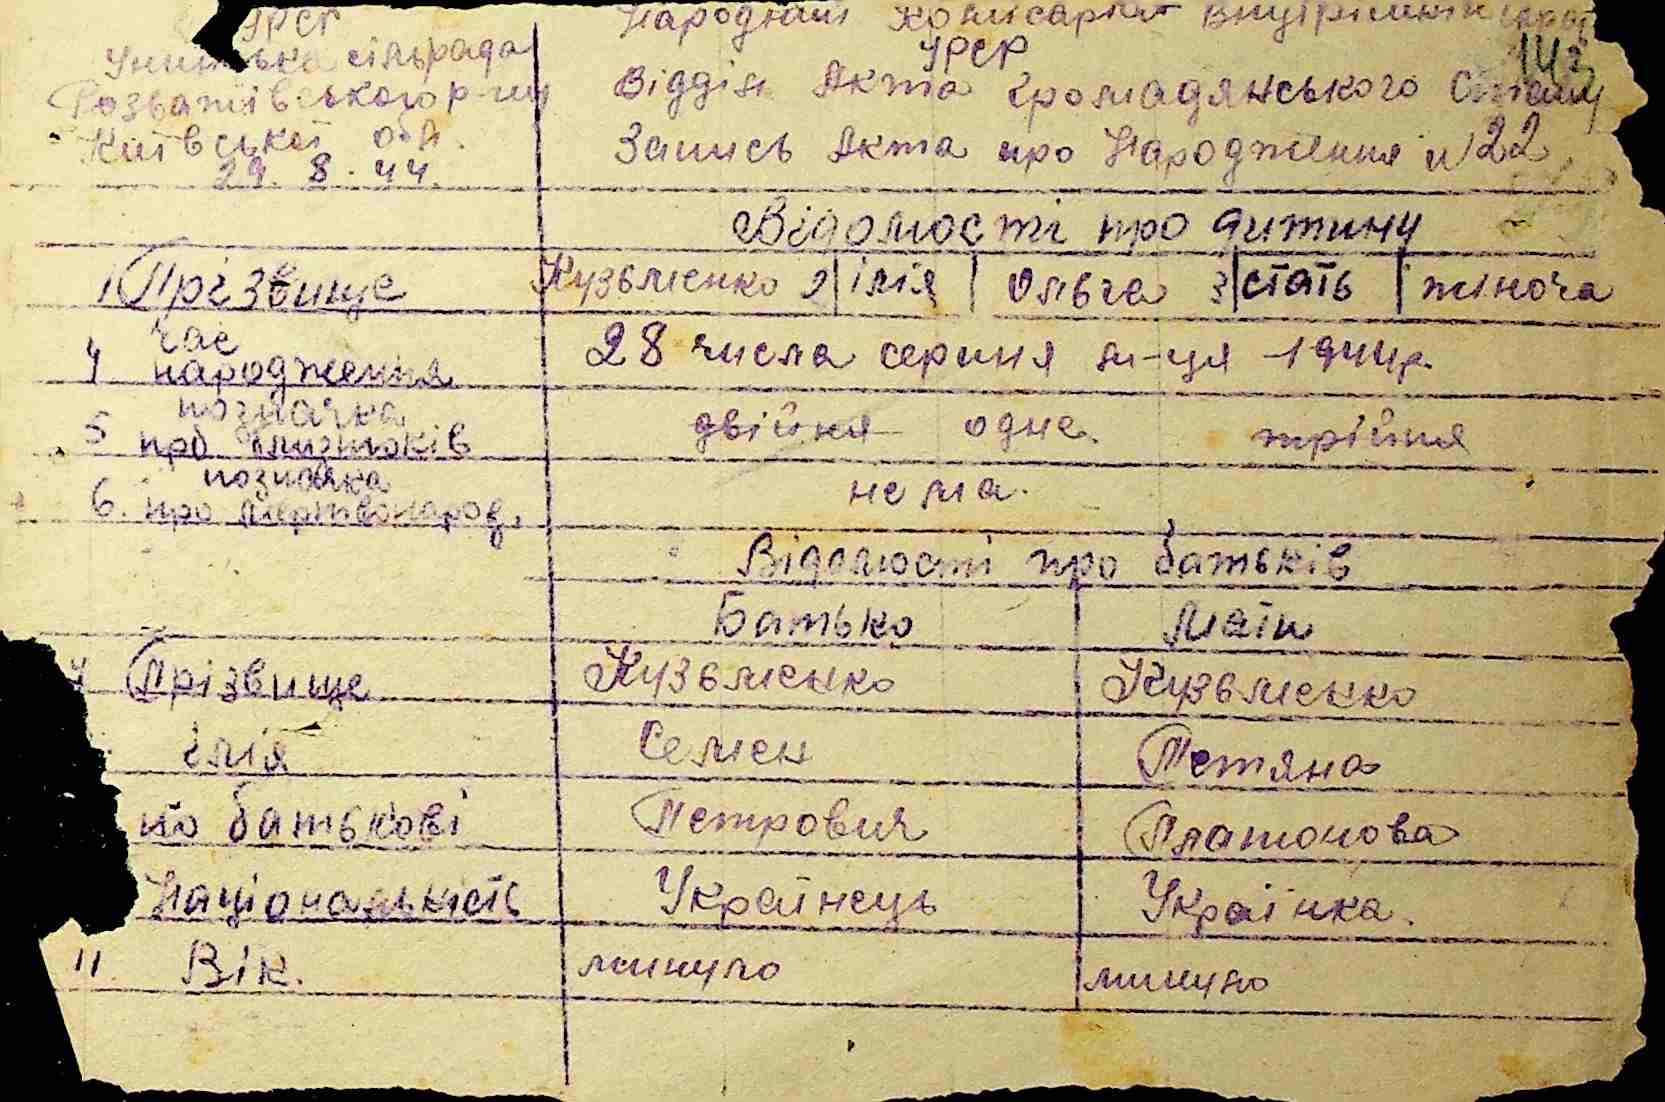 УРСР
сільрада
Розважівського р-ну
Київської обл.
29. 8. 44.
Народний Комісаріат Внутрішніх
УРСР
143
Відділ Акта Громадянського Стану
Запись Акта про Народження N 22
Відомості про дитину
1 Прізвище Кузьменко 2 імія Ольга 3 стать жіноча
4 час народження 28 числа серпня м-ця 1944р.
5 позначка про близнюків двійня одне. трійня
6. позначка про мертвонарод. нема.
Відомості про батьків
Батько Мати
7 Прізвище Кузьменко Кузьменко
імія Семен Тетяна
по батькові Петровия Платонова
Національність Українець Українка.
11. Вік. минуло минуло